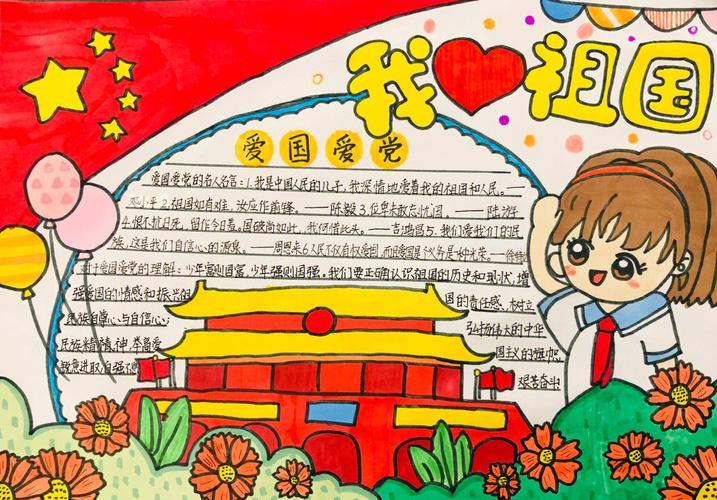 我 祖国
爱国爱党
爱国爱党的名人名言:1.我是中国人民的儿子,我深情地爱着我的祖国和人民。——
邓小平 2.祖国如有难,汝应作前锋。——陈毅 3.位卑未敢忘忧国。——陆游
4.恨不抗日死,留作今日羞。国破尚如此,我何惜此头。——吉鸿昌 5.我们爱我们的民
族,这是我们自信心的源泉。——周恩来 6.人民不仅有权爱国,而且爱国是个义务,是一种光荣。——徐特立
对于爱国爱党的理解:少年富则国富,少年强则国强。我们要正确认识祖国的历史和现状,增
强爱国的情感和振兴祖 国的责任感,树立
民族自尊心与自信心; 弘扬伟大的中华
民族精精神,举高爱 国主义的旗帜,
锐意进取,自强不息 艰苦奋斗